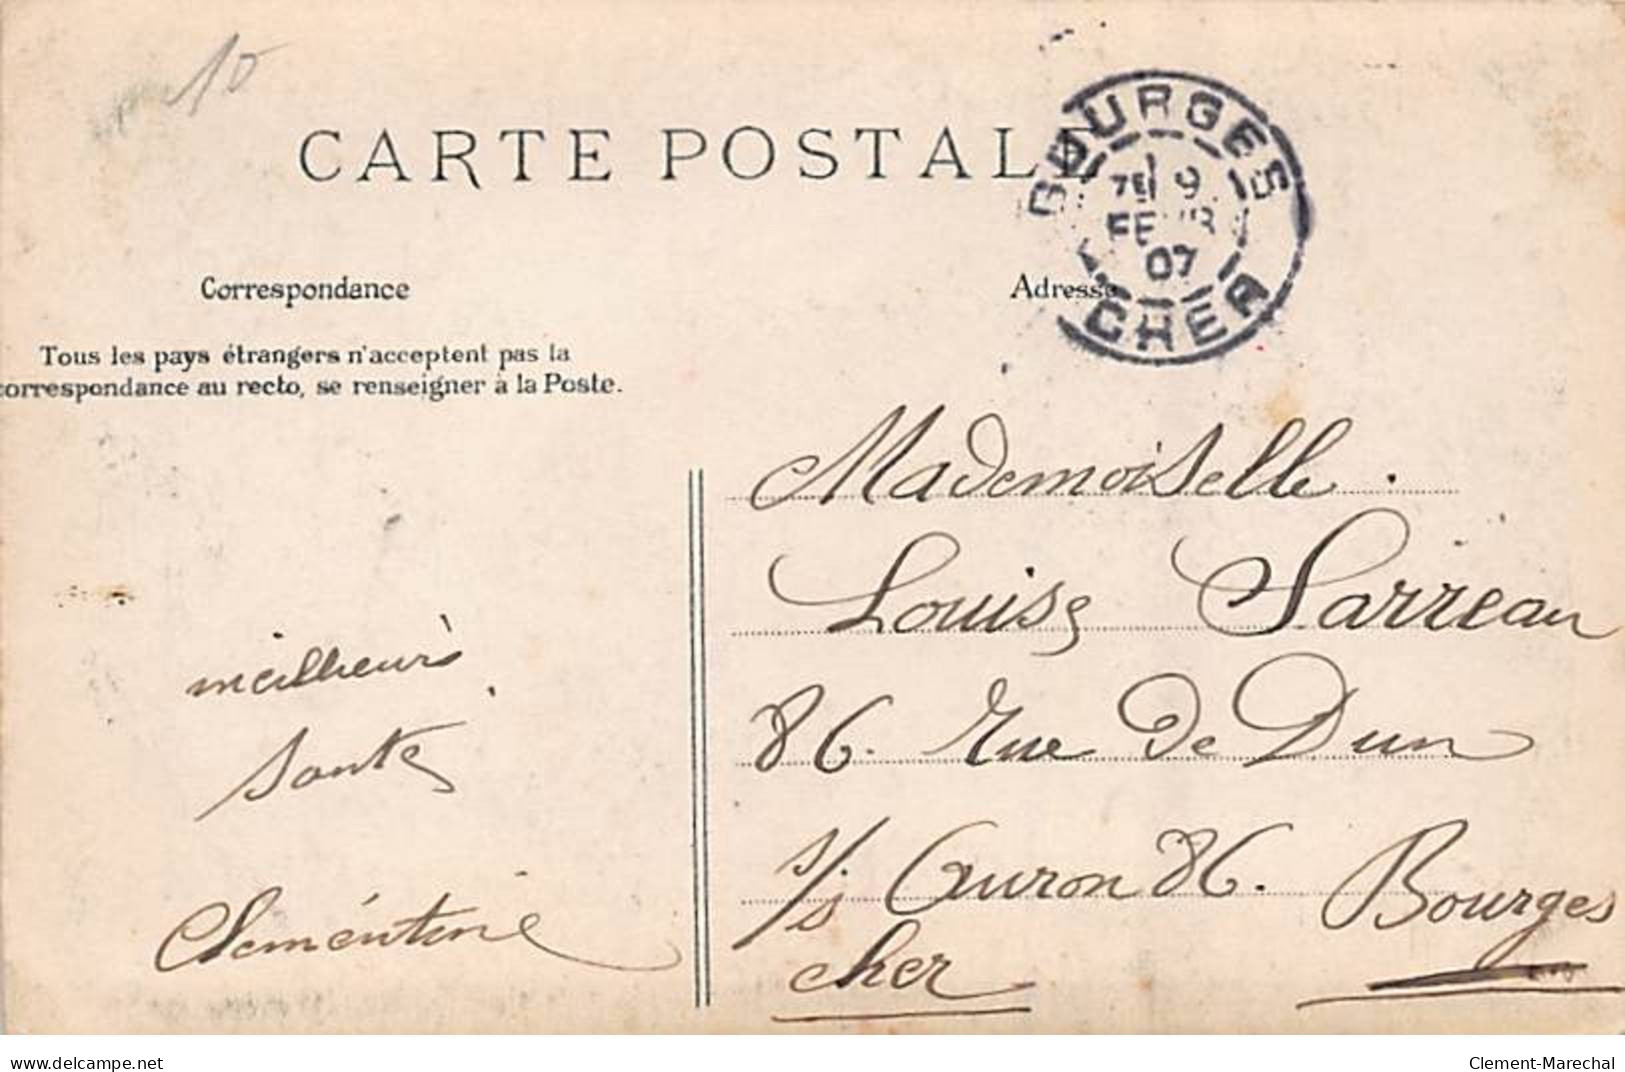 10
CARTE POSTALE
BOURGES
7E 9
FEVR
07
CHER
Correspondance
Adresse
Tous les pays étrangers n'acceptent pas la
correspondance au recto, se renseigner à la Poste.
Mademoiselle.
Louise Sarreau
86. Rue De Dun
s/s Auron 86. Bourges
cher
meilleurs
Sante
Clémentine
www.delcampe.net
Clement-Marechal